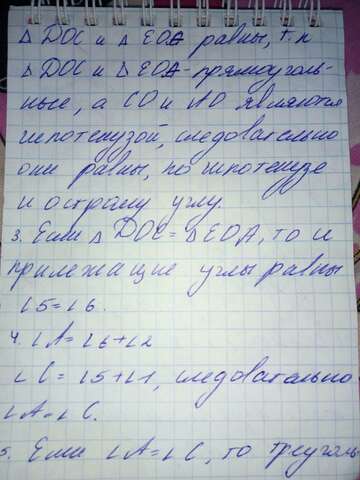 △ DOC и △ EOA равны, т.к
△ DOC и △ EOA - прямоуголь-
ные, а CO и AO являются
гипотенузой, следовательно
они равны, по гипотенузе
и острому углу.
3. Если △ DOC = △ EOA, то и
прилежащие углы равны
∠5=∠6.
4. ∠A=∠6+∠2
∠C=∠5+∠1, следовательно
∠A=∠C.
5. Если ∠A=∠C, то треуголь